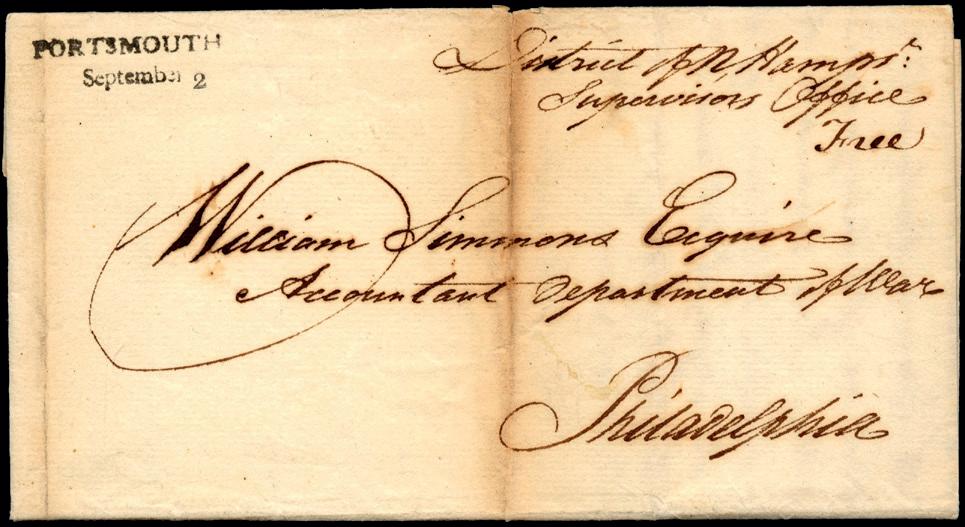 PORTSMOUTH
September 2
District of N, Hampsr:
Supervisors Office
Free
William Simmons Esquire
Accountant department of War
Philadelphia